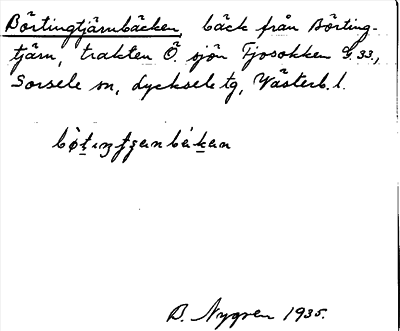 Börtingtjärnbäcken, bäck från Börting-
tjärn, trakten Ö. sjön Tjosokken G. 33.,
Sorsele sn, Lycksele tg, Västerb. l.
B. Nygren 1935.